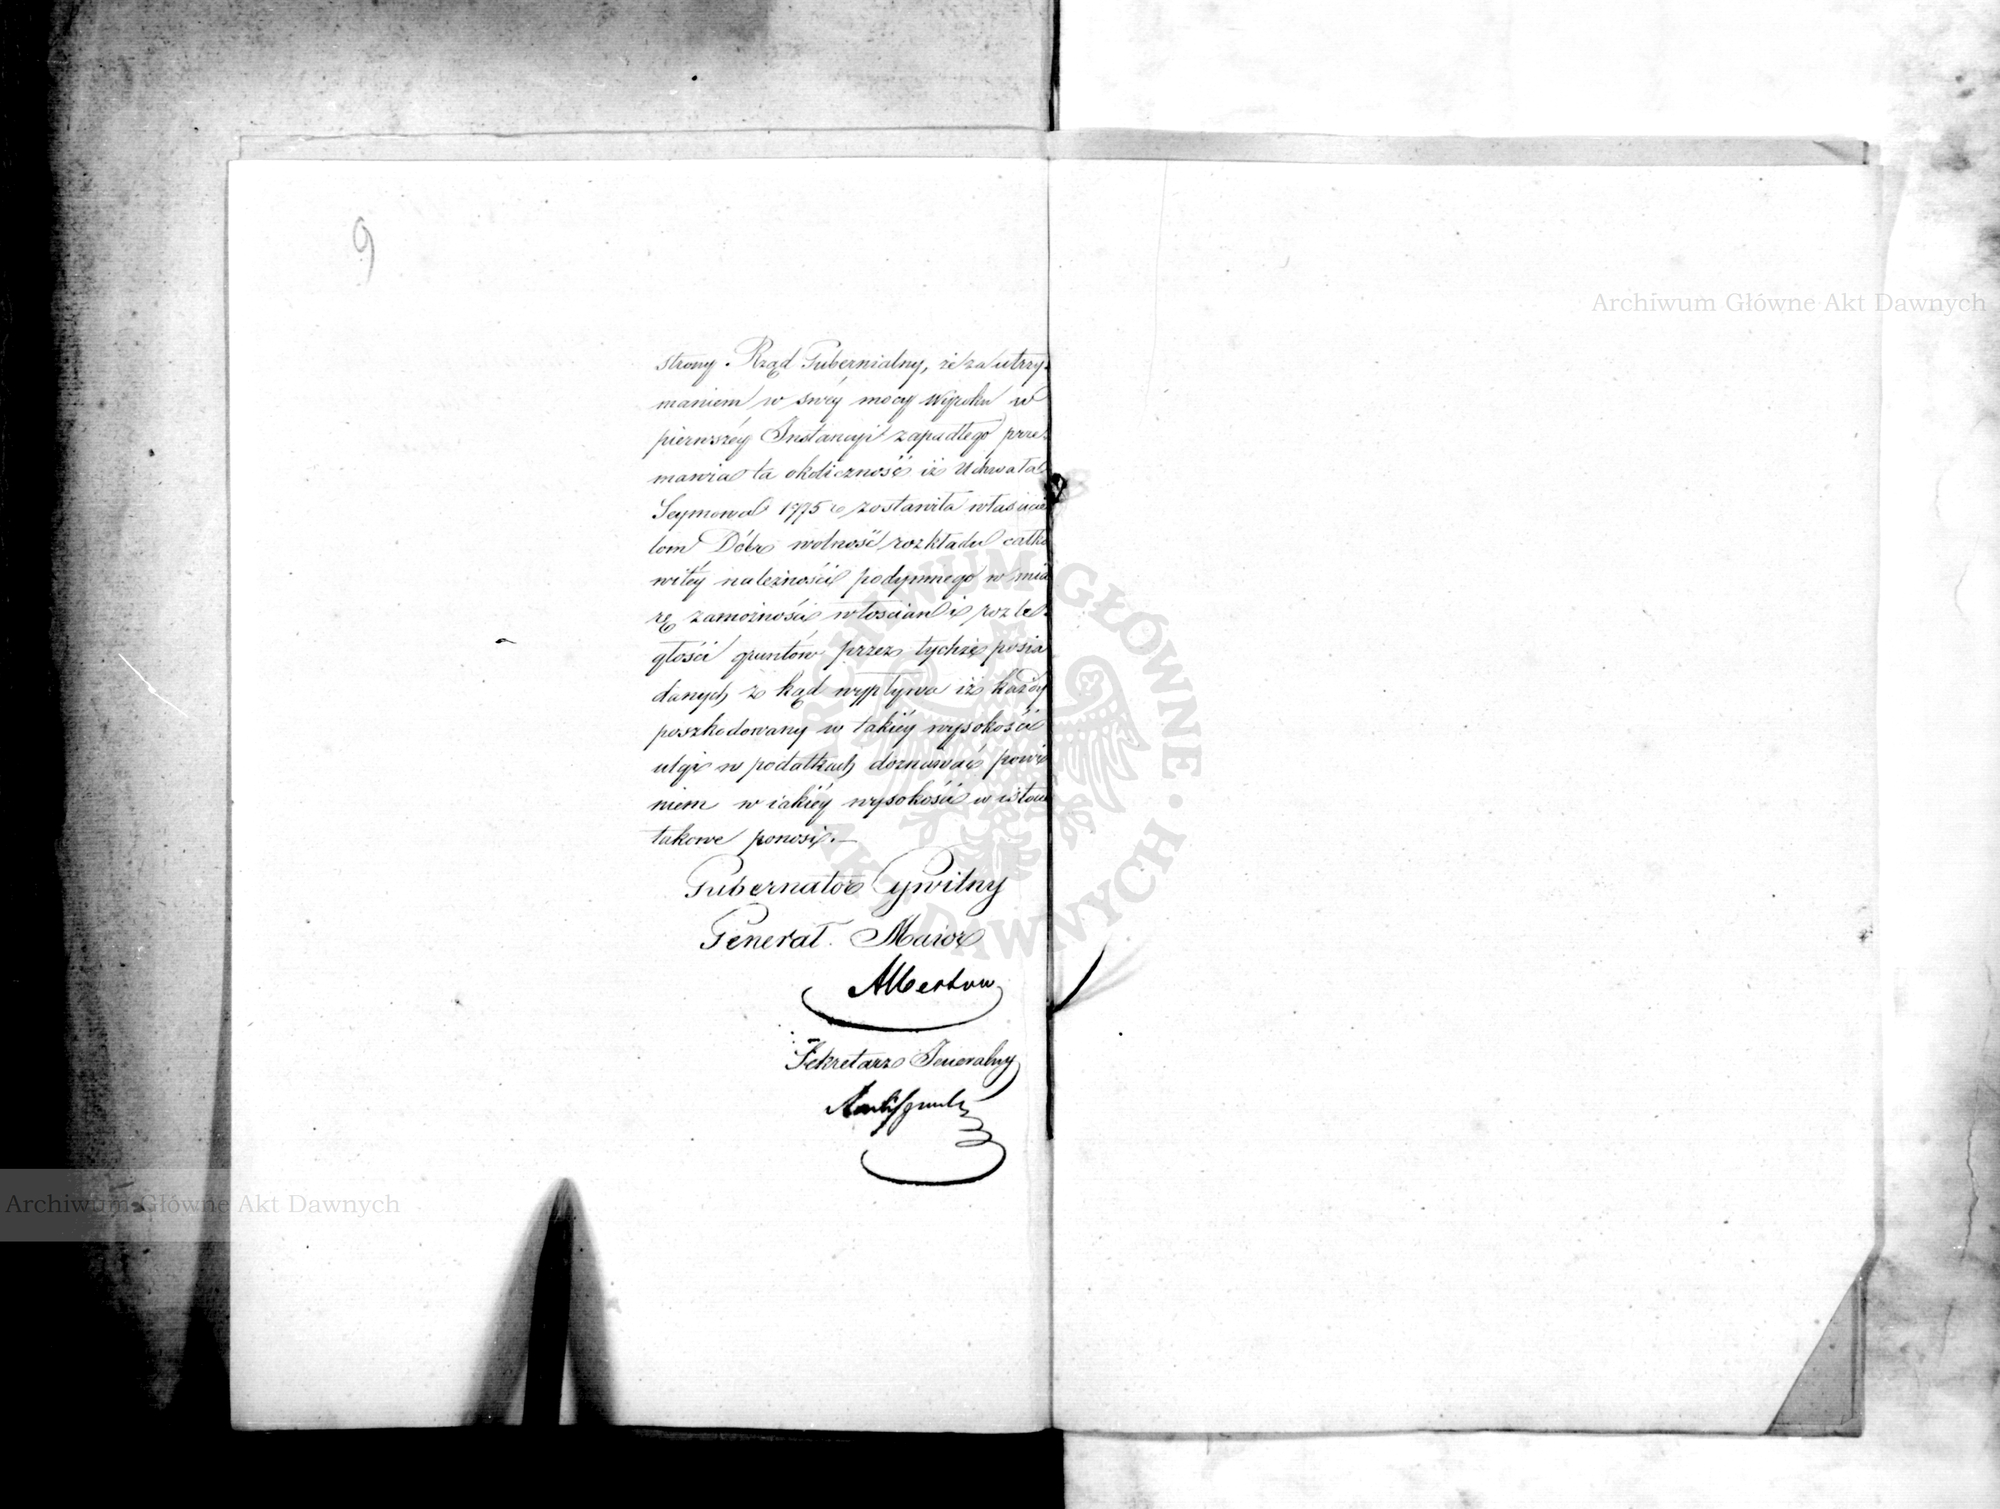 9
strony. Rząd Gubernialny, że za utrzy-
maniem w swéy mocy Wyroku w
pierwszéy Instancyi zapadłego prze-
mawia ta okoliczność iż Uchwała
Seymowa 1775 r zostawiła właścicie
lom Dóbr wolność rozkładu całko
witéy należności podymnego w mia
rę zamożności włościan i rozle-
głości gruntów przez tychże posia
danych z kąd wypływa iż każdy
poszkodowany w takiéy wysokości
ulgi w podatkach doznawać powi
niem w iakiéy wysokości w istocie
takowe ponosi.—
Gubernator Cywilny
Generał Maior
Albertow
Sekretarz Jeneralny
Archiwum Główne Akt Dawnych
Archiwum Główne Akt Dawnych
ARCHIWUM GŁÓWNE AKT DAWNYCH